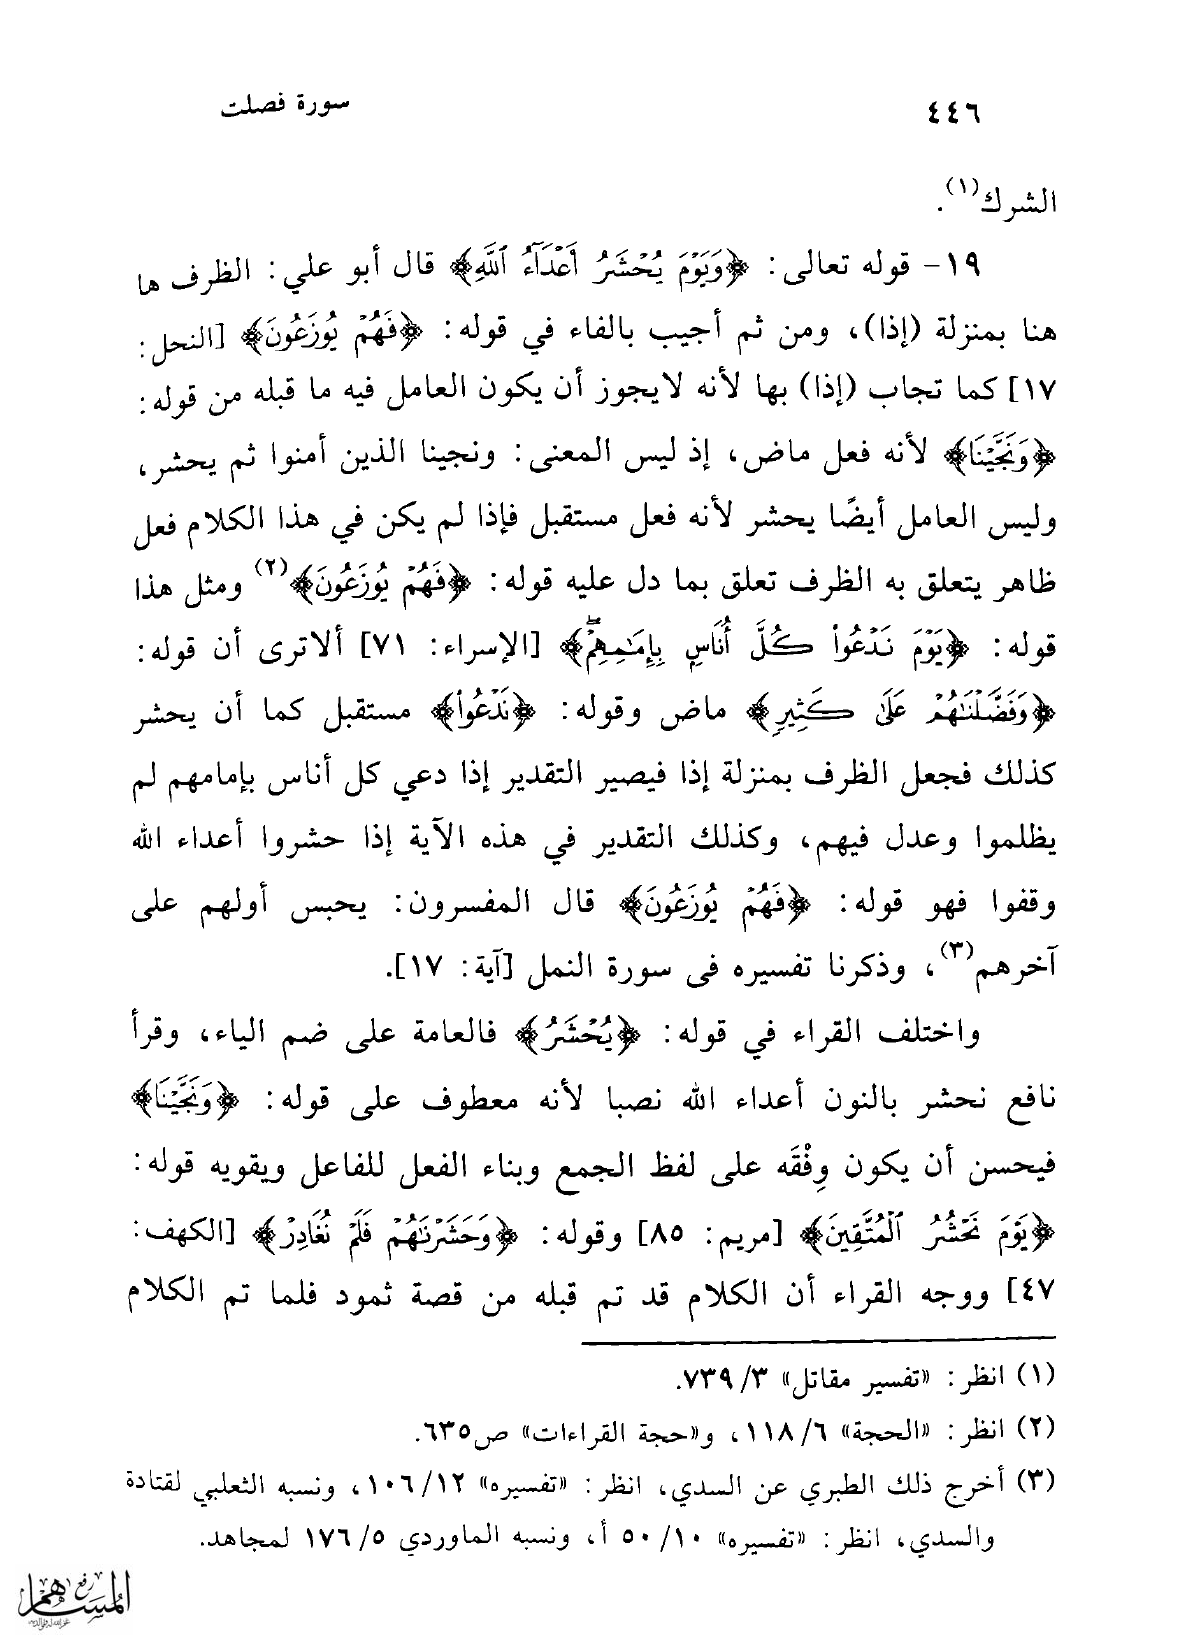 ٤٤٦
سورة فصلت
الشرك(١).
١٩- قوله تعالى: ﴿وَيَوْمَ يُحْشَرُ أَعْدَآءُ ٱللَّهِ﴾ قال أبو علي: الظرف ها
هنا بمنزلة (إذا)، ومن ثم أجيب بالفاء في قوله: ﴿فَهُمْ يُوزَعُونَ﴾ [النحل:
١٧] كما تجاب (إذا) بها لأنه لايجوز أن يكون العامل فيه ما قبله من قوله:
﴿وَنَجَّيْنَا﴾ لأنه فعل ماض، إذ ليس المعنى: ونجينا الذين أمنوا ثم يحشر،
وليس العامل أيضًا يحشر لأنه فعل مستقبل فإذا لم يكن في هذا الكلام فعل
ظاهر يتعلق به الظرف تعلق بما دل عليه قوله: ﴿فَهُمْ يُوزَعُونَ﴾(٢) ومثل هذا
قوله: ﴿يَوْمَ نَدْعُوا۟ كُلَّ أُنَاسٍ بِإِمَـٰمِهِمْ ۖ﴾ [الإسراء: ٧١] ألاترى أن قوله:
﴿وَفَضَّلْنَـٰهُمْ عَلَىٰ كَثِيرٍ﴾ ماض وقوله: ﴿نَدْعُوا۟﴾ مستقبل كما أن يحشر
كذلك فجعل الظرف بمنزلة إذا فيصير التقدير إذا دعي كل أناس بإمامهم لم
يظلموا وعدل فيهم، وكذلك التقدير في هذه الآية إذا حشروا أعداء الله
وقفوا فهو قوله: ﴿فَهُمْ يُوزَعُونَ﴾ قال المفسرون: يحبس أولهم على
آخرهم(٣)، وذكرنا تفسيره فى سورة النمل [آية: ١٧].
واختلف القراء في قوله: ﴿يُحْشَرُ﴾ فالعامة على ضم الياء، وقرأ
نافع نحشر بالنون أعداء الله نصبا لأنه معطوف على قوله: ﴿وَنَجَّيْنَا﴾
فيحسن أن يكون وِفْقَه على لفظ الجمع وبناء الفعل للفاعل ويقويه قوله:
﴿يَوْمَ نَحْشُرُ ٱلْمُتَّقِينَ﴾ [مريم: ٨٥] وقوله: ﴿وَحَشَرْنَـٰهُمْ فَلَمْ نُغَادِرْ﴾ [الكهف:
٤٧] ووجه القراء أن الكلام قد تم قبله من قصة ثمود فلما تم الكلام
(١) انظر: «تفسير مقاتل» ٣/ ٧٣٩.
(٢) انظر: «الحجة» ٦/ ١١٨، و«حجة القراءات» ص٦٣٥.
(٣) أخرج ذلك الطبري عن السدي، انظر: «تفسيره» ١٢/ ١٠٦، ونسبه الثعلبي لقتادة
والسدي، انظر: «تفسيره» ١٠/ ٥٠ أ، ونسبه الماوردي ٥/ ١٧٦ لمجاهد.